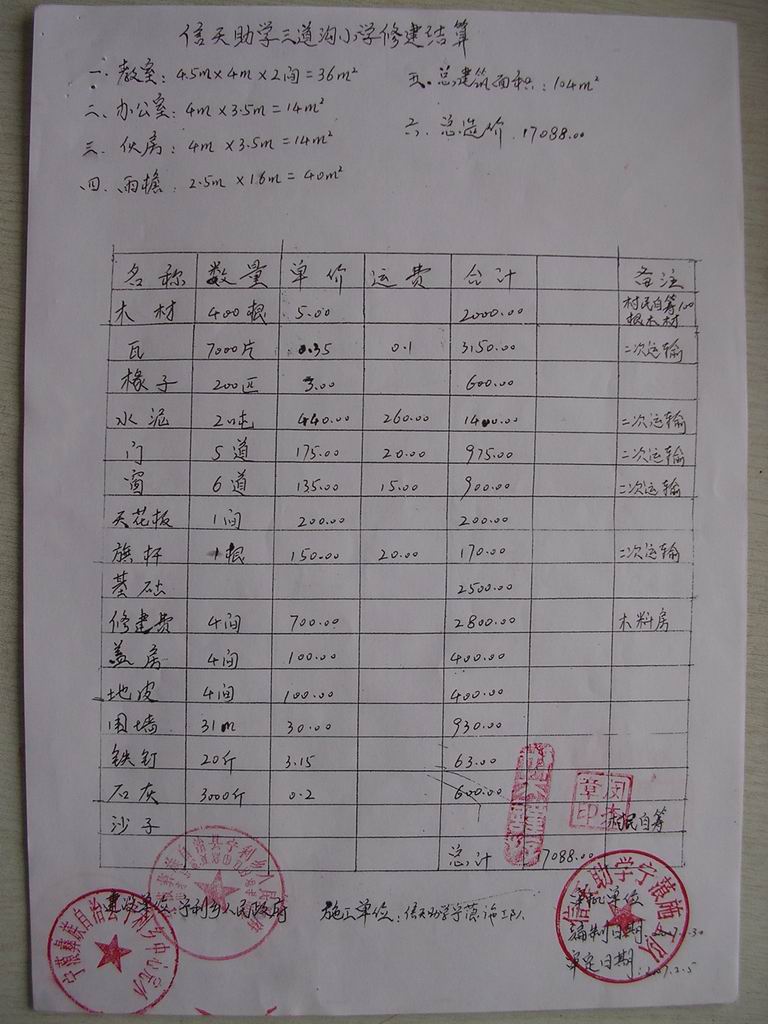 信天助学三道沟小学修建结算
一. 教室: 4.5m×4m×2间=36m²
二. 办公室: 4m×3.5m=14m²
三. 伙房: 4m×3.5m=14m²
四. 雨檐: 2.5m×16m=40m²
五. 总建筑面积: 104m²
六. 总造价: 17088.00
名称 数量 单价 运费 合计 备注
木材 400根 5.00 2000.00 村民自筹100根木材
瓦 7000片 0.35 0.1 3150.00 二次运输
椽子 200匹 3.00 600.00
水泥 2吨 440.00 260.00 1400.00 二次运输
门 5道 175.00 20.00 975.00 二次运输
窗 6道 135.00 15.00 900.00 二次运输
天花板 1间 200.00 200.00
旗杆 1根 150.00 20.00 170.00 二次运输
基础 2500.00
修建费 4间 700.00 2800.00 木料房
盖房 4间 100.00 400.00
地皮 4间 100.00 400.00
围墙 31m 30.00 930.00
铁钉 20斤 3.15 63.00
石灰 3000斤 0.2 600.00
沙子 村民自筹
总计 17088.00
建设单位: 宁利乡人民政府 施工单位: 信天助学宁蒗施工队
审批单位
编制日期: 2007.
审定日期: 2007.2.5
信天助学宁蒗施工队
宁蒗彝族自治县宁利乡中心完小